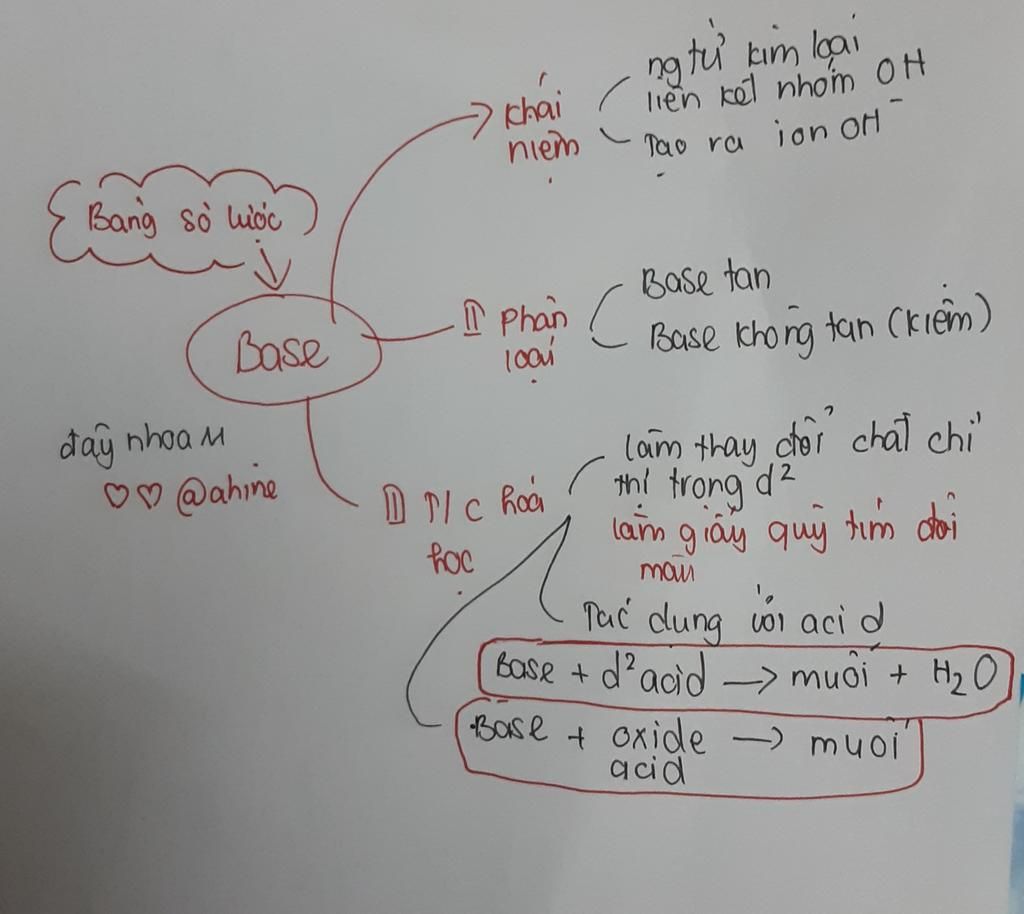 Bảng sơ lược
Base
đây nhoa M
@ahine
khái
niệm
ng tử kim loại
liên kết nhóm OH
Tạo ra ion OH⁻
II phân
loại
Base tan
Base không tan (kiềm)
II T/c hoá
học
làm thay đổi chất chỉ
thị trong d²
làm giấy quỳ tím đổi
màu
Tác dụng với acid
Base + d² acid → muối + H₂O
Base + oxide → muối
acid